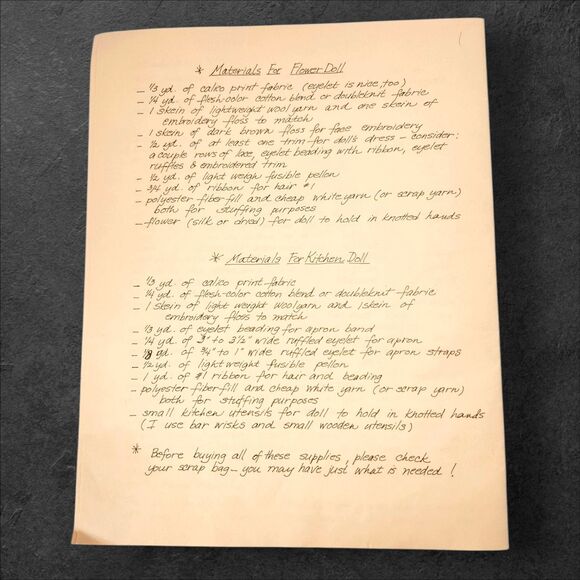 * Materials For Flower Doll
– 1/3 yd. of calico print fabric (eyelet is nice, too)
– 1/4 yd. of flesh-color cotton blend or doubleknit fabric
– 1 skein of lightweight wool yarn and one skein of
embroidery floss to match
– 1 skein of dark brown floss for face embroidery
– 1/2 yd. of at least one trim for doll's dress – consider:
a couple rows of lace, eyelet beading with ribbon, eyelet
ruffles & embroidered trim
– 1/2 yd. of light weigh fusible pellon
– 3/4 yd. of ribbon for hair #1
– polyester fiberfill and cheap white yarn (or scrap yarn)
both for stuffing purposes
– flower (silk or dried) for doll to hold in knotted hands
* Materials For Kitchen Doll
– 1/3 yd. of calico print fabric
– 1/4 yd. of flesh-color cotton blend or doubleknit fabric
– 1 skein of light weight wool yarn and 1 skein of
embroidery floss to match
– 1/3 yd. of eyelet beading for apron band
– 1/4 yd. of 3" to 3 1/2" wide ruffled eyelet for apron
– yd. of 3/4" to 1" wide ruffled eyelet for apron straps
– 1/2 yd. of lightweight fusible pellon
– 1 yd. of #1 ribbon for hair and beading
– polyester fiberfill and cheap white yarn (or scrap yarn)
both for stuffing purposes
– small kitchen utensils for doll to hold in knotted hands
(I use bar wisks and small wooden utensils)
* Before buying all of these supplies, please check
your scrap bag – you may have just what is needed!